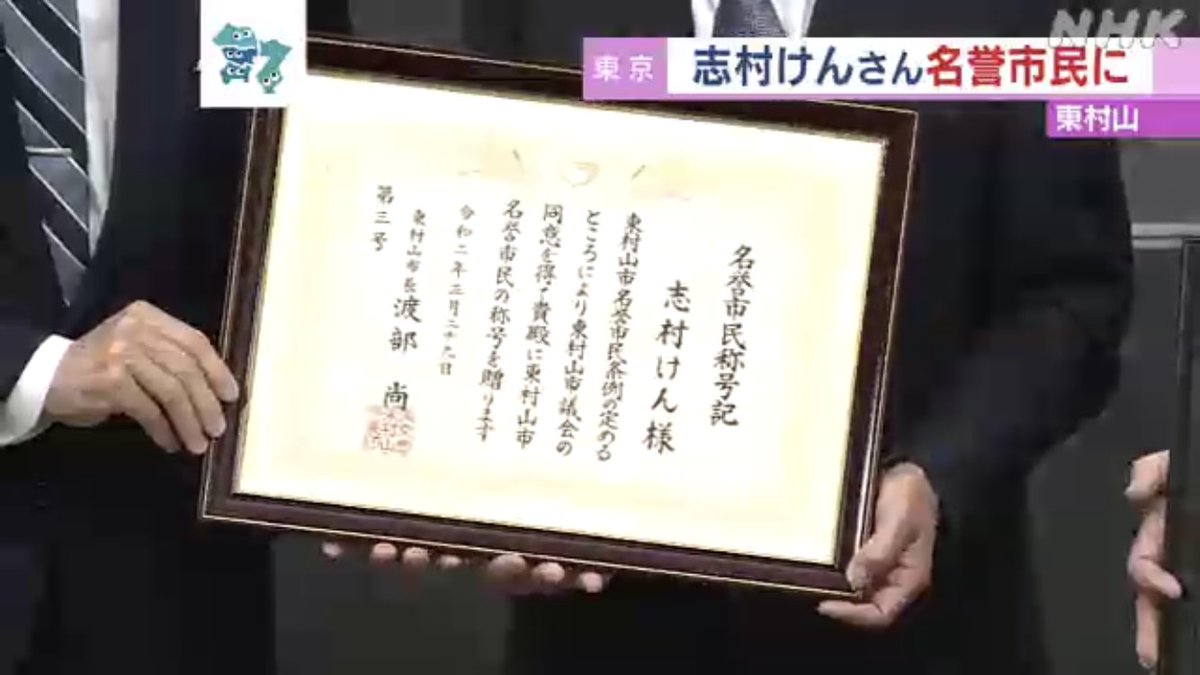 NHK
東京
志村けんさん名誉市民に
東村山
名誉市民称号記
志村けん様
東村山市名誉市民条例の定める
ところにより東村山市議会の
同意を得て貴殿に東村山市
名誉市民の称号を贈ります
令和二年三月二十九日
東村山市長 渡部 尚
第三号